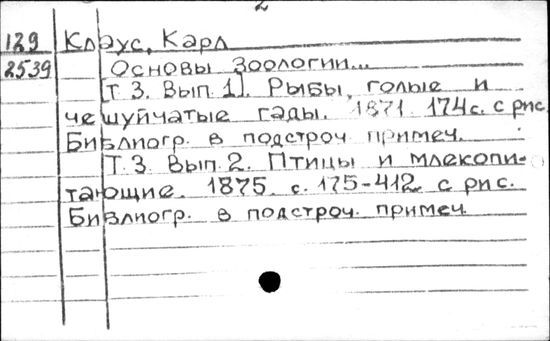 2
129 Клаус, Карл
2539 Основы зоологии...
[Т 3. Вып. 1]. Рыбы, голые и
чешуйчатые гады. 1871. 174с. с рис.
Библиогр. в подстроч. примеч.
Т. 3. Вып. 2. Птицы и млекопи-
тающие. 1875. с. 175-412. с рис.
Библиогр. в подстроч. примеч.